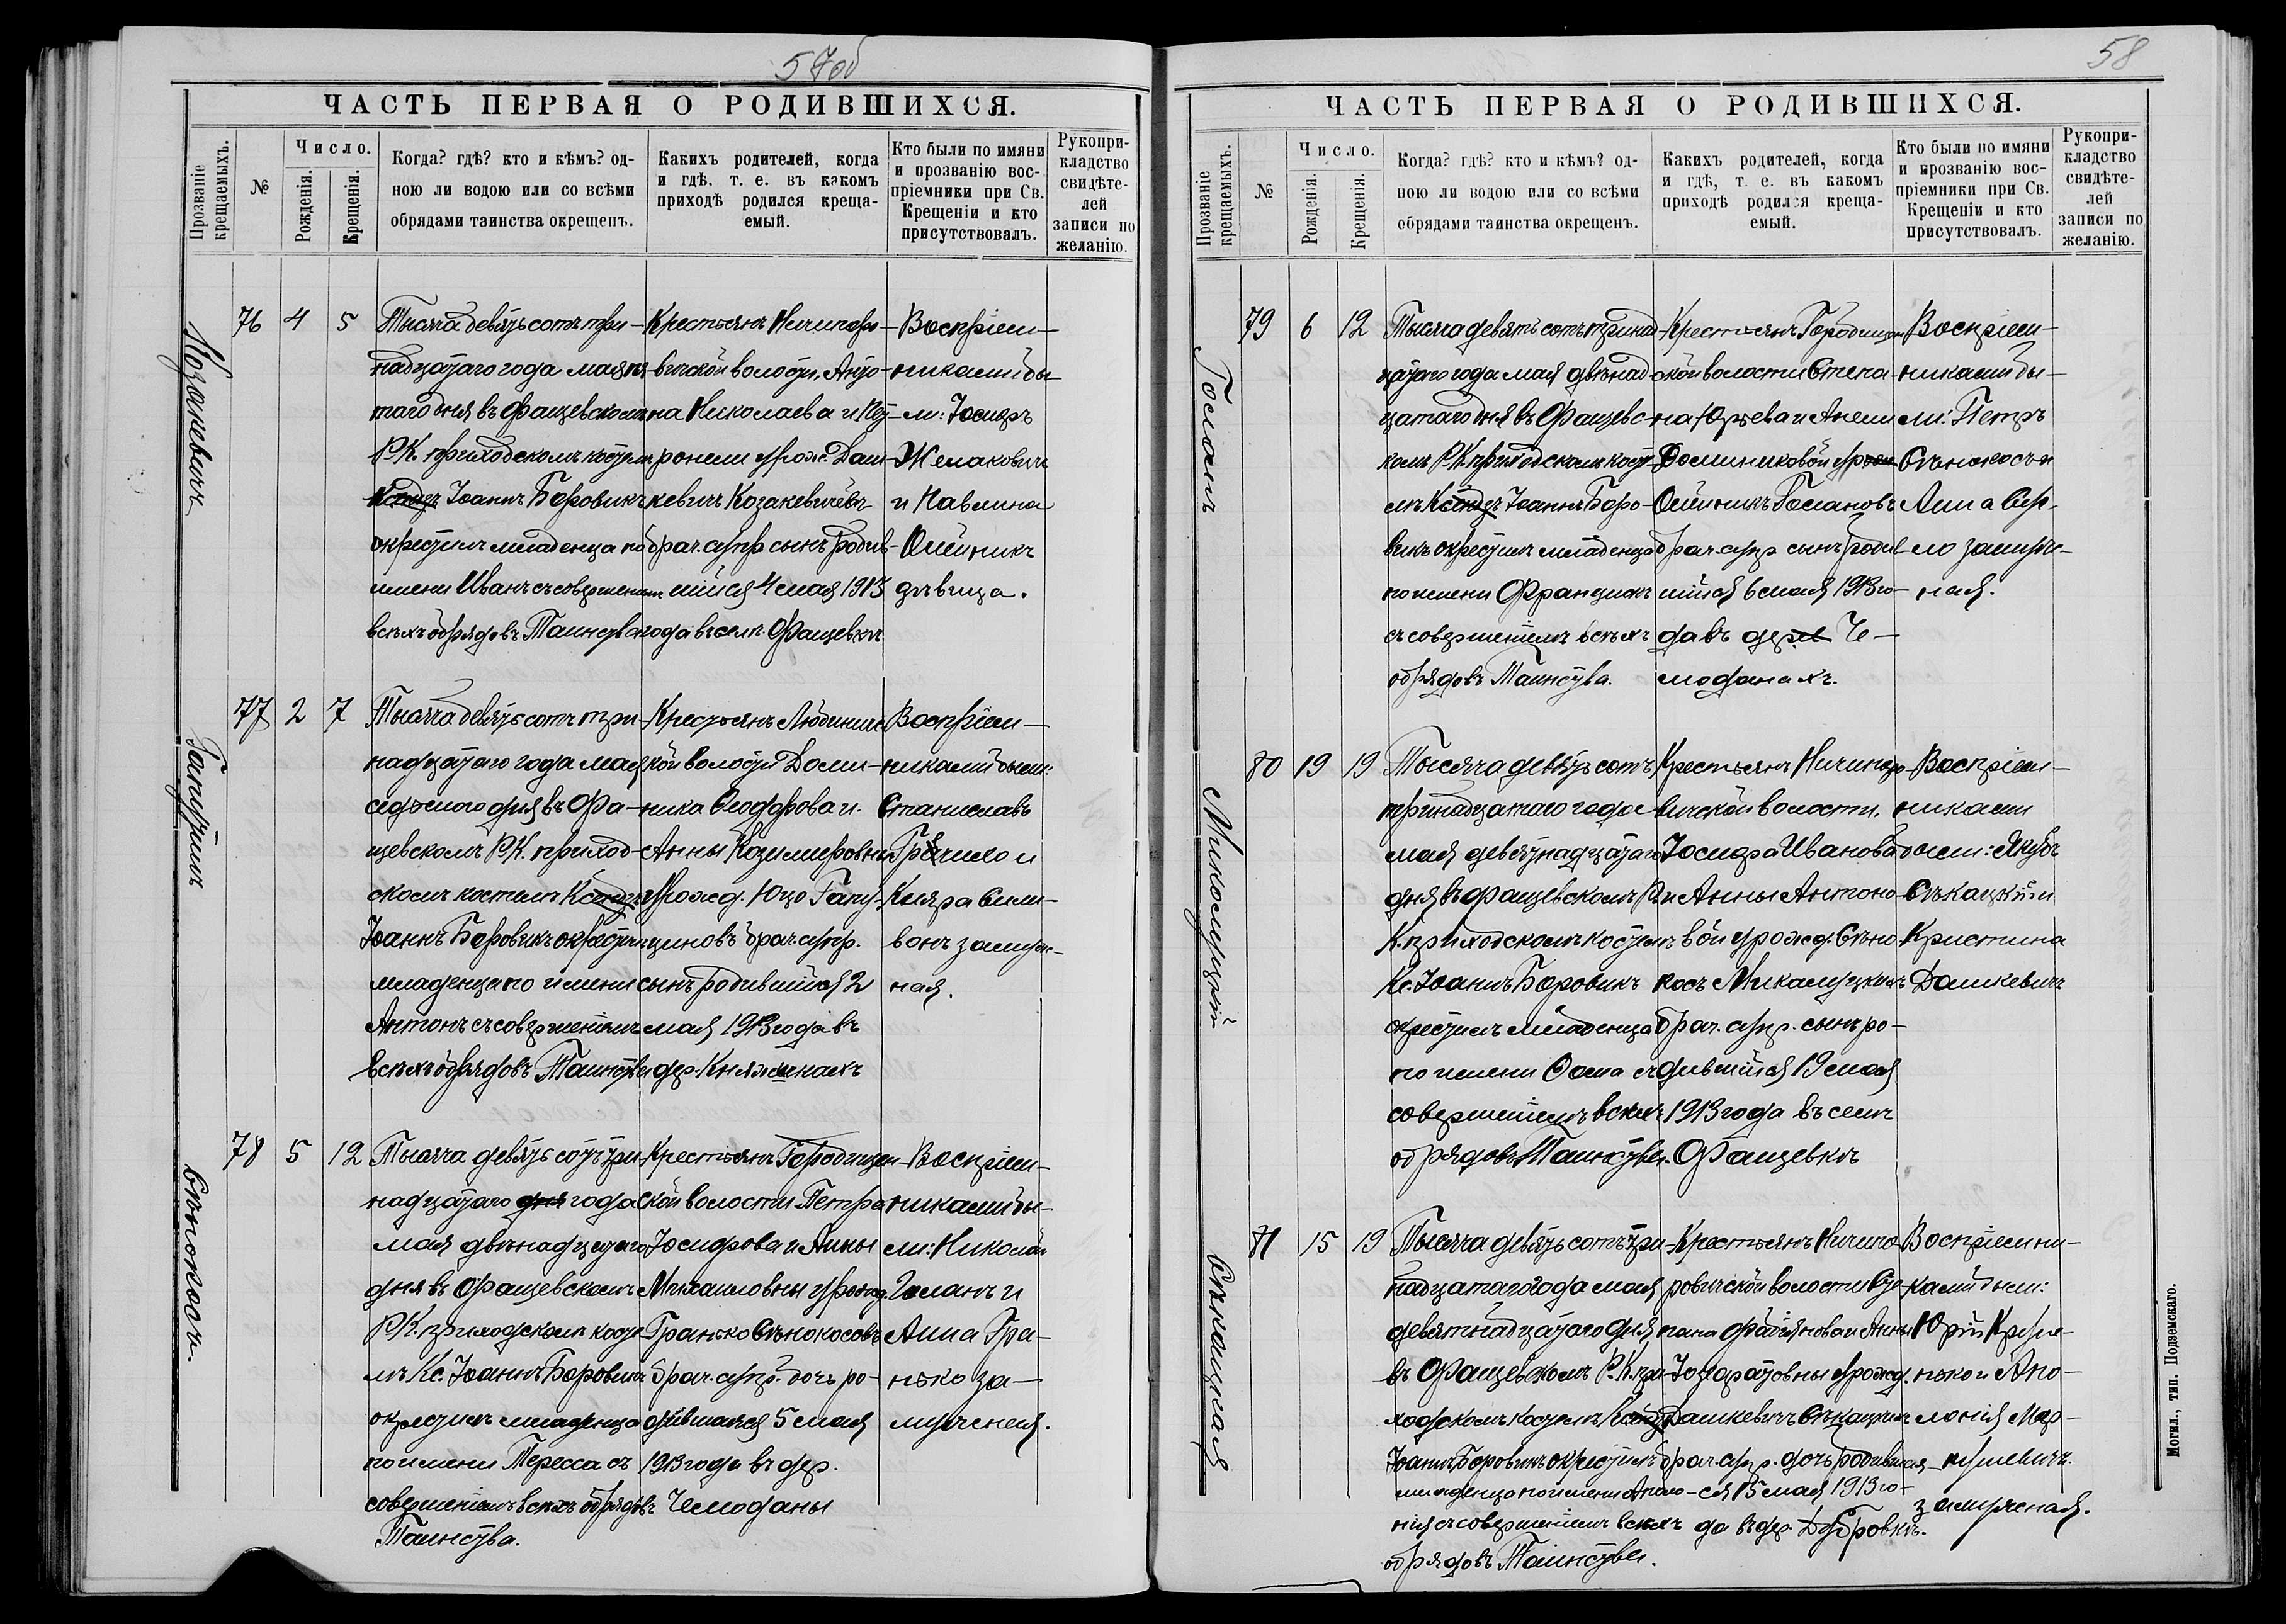 57об
ЧАСТЬ ПЕРВАЯ О РОДИВШИХСЯ.
Прозваніе крещаемыхъ.
№
Число.
Рожденія.
Крещенія.
Когда? гдѣ? кто и кѣмъ? од-
ною ли водою или со всѣми
обрядами таинства окрещенъ.
Какихъ родителей, когда
и гдѣ, т. е. въ какомъ
приходѣ родился креща-
емый.
Кто были по имяни
и прозванію вос-
пріемники при Св.
Крещеніи и кто
присутствовалъ.
Рукопри-
кладство
свидѣте-
лей
записи по
желанію.
Козакевичъ
76 4 5
Тысяча девятьсотъ три-
надцатаго года мая пя-
таго дня въ Фащевскомъ
Р.К. приходскомъ костелѣ
Ксендзъ Іоаннъ Боровикъ
окрестилъ младенца по
имени Иванъ съ совершеніемъ
всѣхъ обрядовъ Таинства
Крестьянъ Ничипоро-
вичской волости, Анто-
на Николаева и Пет-
ронели урож. Даш-
кевичъ Козакевичевъ
брач. супр. сынъ родив-
шійся 4 мая 1913
года въ селѣ Фащевкѣ
Воспріем-
никами бы-
ли: Іосифъ
Желакович
и Павлина
Олейникъ
дѣвица.
Гапуцинъ
77 2 7
Тысяча девятьсотъ три-
надцатаго года мая
седьмого дня въ Фа-
щевскомъ Р.К. приход-
скомъ костелѣ Ксендзъ
Іоаннъ Боровикъ окрестилъ
младенца по имени
Антонъ съ совершеніемъ
всѣхъ обрядовъ Таинства
Крестьянъ
кой волости Доми-
ника Феодорова и
Анны Казимировны
урожд. Юцо Гапу-
циновъ брач. супр.
сынъ родившійся 2
мая 1913 года въ
дер. Княжикахъ
Воспріем-
никами были:
Станиславъ
и
Кляра Сили-
вонъ замуж-
ная.
Сѣнокосъ.
78 5 12
Тысяча девятьсотъ три-
надцатаго дня года
мая двѣнадцатаго
дня въ Фащевскомъ
Р.К. приходскомъ косте-
лѣ Кс. Іоаннъ Боровикъ
окрестилъ младенца
по имени Тересса съ
совершеніемъ всѣхъ обрядовъ
Таинства.
Крестьянъ Городищен-
ской волости Петра
Іосифова и Анны
Михаиловны урожд.
Гранько Сѣнокосовъ
брач. супр. дочь ро-
дившаяся 5 мая
1913 года въ дер.
Чемоданы
Воспріем-
никами бы-
ли: Николай
Голанъ и
Анна Гра-
нько за-
мужнея.
58
ЧАСТЬ ПЕРВАЯ О РОДИВШИХСЯ.
Прозваніе крещаемыхъ.
№
Число.
Рожденія.
Крещенія.
Когда? гдѣ? кто и кѣмъ? од-
ною ли водою или со всѣми
обрядами таинства окрещенъ.
Какихъ родителей, когда
и гдѣ, т. е. въ какомъ
приходѣ родился креща-
емый.
Кто были по имяни
и прозванію вос-
пріемники при Св.
Крещеніи и кто
присутствовалъ.
Рукопри-
кладство
свидѣте-
лей
записи по
желанію.
Голанъ
79 6 12
Тысяча девятьсотъ тринад-
цатаго года мая двѣнад-
цатаго дня въ Фащевс-
комъ Р.К. приходскомъ косте-
лѣ Ксендзъ Іоаннъ Боро-
викъ окрестилъ младенца
по имени Францискъ
съ совершеніемъ всѣхъ
обрядовъ Таинства.
Крестьянъ Городищен-
ской волости Степа-
на Юрьева и Анели
Доминиковой урож
Олейникъ Голановъ
брач. супр. сынъ родив-
шійся 6 мая 1913 го-
да въ дер. Че-
моданахъ.
Воспріем-
никами бы-
ли: Петръ
Сѣнокосъ и
Анна
замуж-
ная.
Миколуцкій
80 19 19
Тысяча девятьсотъ
тринадцатаго года
мая девятнадцатаго
дня въ Фащевскомъ Р.
К. приходскомъ костелѣ
Кс. Іоаннъ Боровикъ
окрестилъ младенца
по имени Ѳома съ
совершеніемъ всѣхъ
обрядовъ Таинства.
Крестьянъ Ничипоро-
вичской волости.
Іосифа Иванова
и Анны Антоно-
вой урожд. Сѣно-
косъ Микалуцкихъ
брач. супр. сынъ ро-
дившійся 19 мая
1913 года въ селѣ
Фащевкѣ
Воспріем-
никами
были: Якубъ
Сѣкацкій и
Кристина
Дашкевичъ
Сѣкацкая
81 15 19
Тысяча девятьсотъ три-
надцатаго года мая
девятнадцатаго дня
въ Фащевскомъ Р.К. при-
ходскомъ костелѣ Ксендзъ
Іоаннъ Боровикъ окрестилъ
младенца по имени Аполо-
нія съ совершеніемъ всѣхъ
обрядовъ Таинства.
Крестьянъ Ничипо-
ровичской волости Сте-
пана Фабіянова и Анны
урожд.
Дашкевичъ Сѣкацкихъ
брач. супр. дочь родившая-
ся 15 мая 1913 го-
да въ дер. Дубровкѣ.
Воспріемни-
ками были:
Юрій Круше-
нько и Апо-
лонія Мар-
кушевичъ.
замужная.
Могил., тип. Подземскаго.